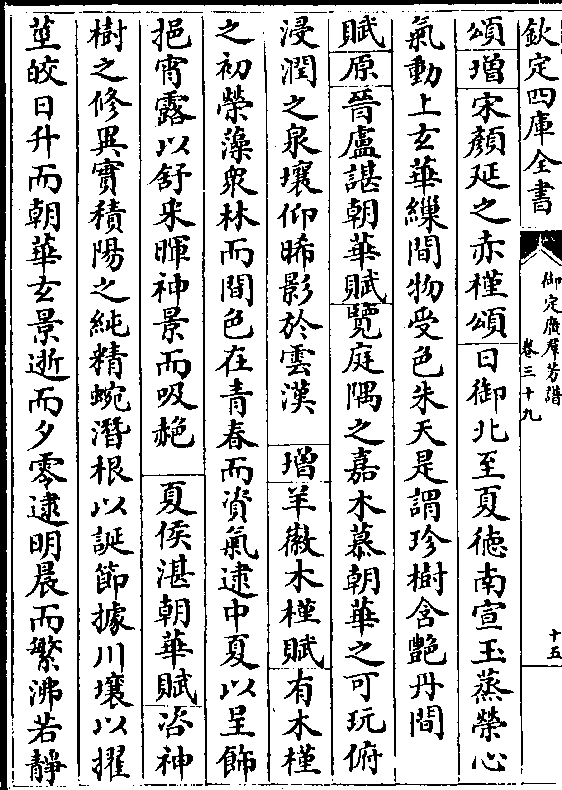 欽定四庫全書
御定廣羣芳譜
卷三十九
十五
頌增宋顏延之赤槿頌日御北至夏德南宣玉蒸榮心
氣動上玄華繅間物受色朱天是謂珍樹含艷丹間
賦原晉盧諶朝華賦覽庭隅之嘉木慕朝華之可玩俯
浸潤之泉壤仰晞影於雲漢增羊徽木槿賦有木槿
之初榮藻衆林而間色在青春而資氣逮中夏以呈飾
挹宵露以舒采暉神景而吸赩夏侯湛朝華賦咨神
樹之修異實積陽之純精蜿潛根以誕節據川壤以擢
莖皎日升而朝華玄景逝而夕零逮明晨而繁沸若靜